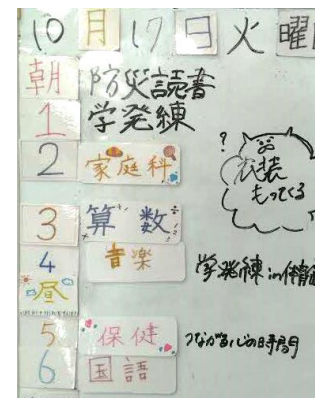 10月17日火曜
朝 防災読書
1 学発練
2 家庭科
?
衣装
もってくる
3 算数
4 音楽
学発練 in 体育
昼
5 保健 つながる心の時間
6 国語